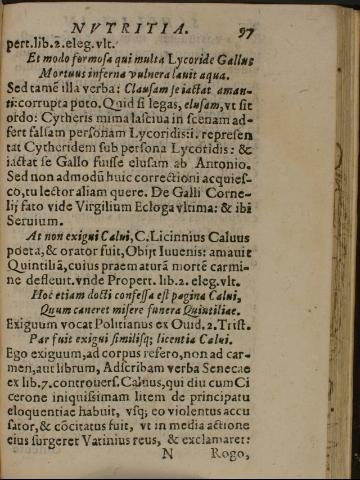 NVTRITIA. 97
pert.lib.2.eleg.vlt.
Et modo formosa qui multa Lycoride Gallus
Mortuus inferna vulnera lauit aqua.
Sed tamē illa verba: Clausam se iactat aman-
ti:corrupta puto. Quid si legas, elusam, vt sit
ordo: Cytheris mima lasciua in scenam ad-
fert falsam personam Lycoridis:i. represen
tat Cytheridem sub persona Lycoridis: &
iactat se Gallo fuisse elusam ab Antonio.
Sed non admodū huic correctioni acquies-
co, tu lector aliam quere. De Galli Corne-
lij fato vide Virgilium Ecloga vltima: & ibi
Seruium.
At non exigui Calui, C. Licinnius Caluus
poëta, & orator fuit, Obijt Iuuenis: amauit
Quintiliā, cuius præmaturā mortē carmi-
ne defleuit. vnde Propert. lib.2. eleg.vlt.
Hoc etiam docti confessa est pagina Calui,
Quum caneret misere funera Quintiliae.
Exiguum vocat Politianus ex Ouid. 2. Trist.
Par fuit exigui similisq; licentia Calui.
Ego exiguum, ad corpus refero, non ad car-
men, aut librum, Adscribam verba Senecae
ex lib.7. controuers. Caluus, qui diu cum Ci
cerone iniquissimam litem de principatu
eloquentiae habuit, vsq; eo violentus accu
sator, & cōcitatus fuit, vt in media actione
eius surgeret Vatinius reus, & exclamaret:
N Rogo,